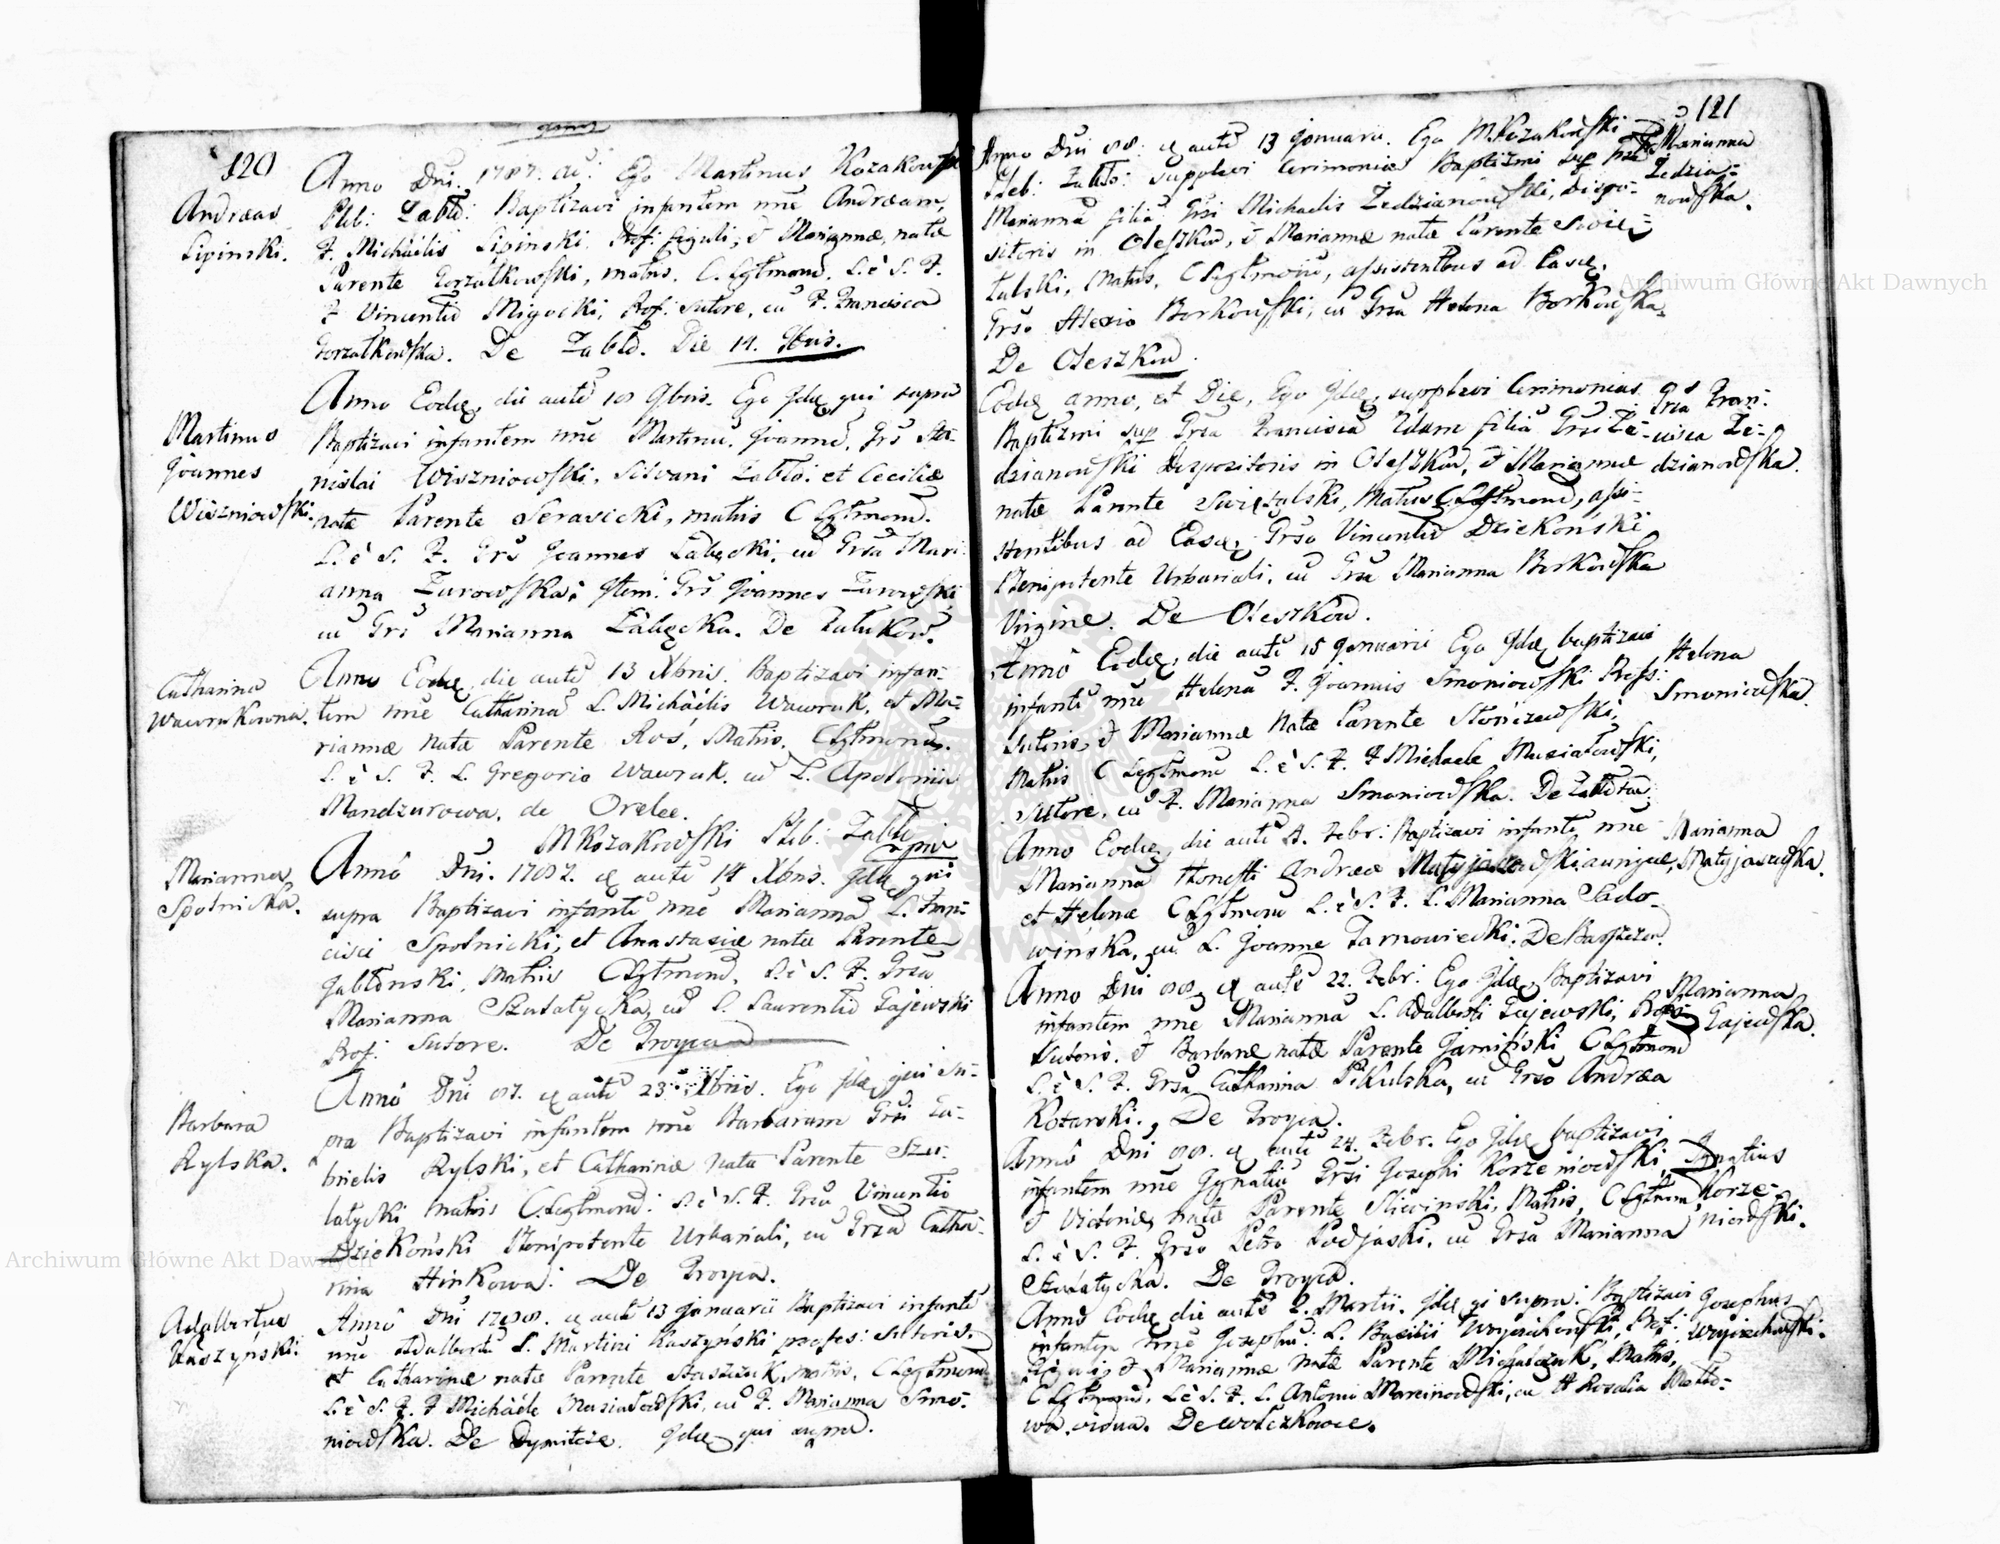 120
Andreas
Lipinski.
Anno Dni. 1787. Ego Martinus Kozakowski
Pleb: Zabłd: Baptizavi infantem nne Andream,
F. Michäelis Lipinski Prof: figuli, et Mariannæ, natæ
Parente Gorzałkowski, matris. C. Lgtmorū. L. è S. F.
F Vincentio Migocki, Prof. sutore, cū F. Francisca
Gorzałkowska. De Zabłd. Die 14. 9bris.
Martinus
Joannes
Wiszniowski.
Anno Eodē, die autē 18 9bris. Ego Jdē qui supra
Baptizavi infantem nne Martinū. Joannē, Grsi Sta-
nislai Wiszniowski, Silvani Zabłd. et Ceciliæ
natæ Parente Serasicki, matris C Lgtmorū.
L. è S. F. Grs Joannes Łabęcki, cū Grsa Mari
anna Zurowska; Jtem: Grs Joannes Zurowski
cū Grs Marianna Łabęcka. De Załukow.
Catharina
Wawrukowna.
Anno Eodē, die autē 13 Xbris. Baptizavi infan-
tem nne Catharinā L. Michäelis Wawruk, et Ma-
riannæ natæ Parente Roś, Matris. C Lgtmorū.
L. è S. F. L. Gregorio Wawruk. cū L. Apolonia
Mandzurowa, de Orelec.
MKozakowski Pleb: Zabłd
Marianna
Społnicka.
Annô Dni. 1787. autē 14 Xbris. Jdē qui
supra Baptizavi infantē nne Mariannā L. Fran-
cisci Społnicki, et Anastasiæ natæ Parente
Jabłonski, Matris C Lgtmorū. L. è S. F. Grsa
Marianna Szałatycka, cū L. Laurentio Gajewski
Prof: Sutore. De Proyca
Barbara
Rylska.
Annô Dni 87. autē 23 Xbris. Ego Jdē qui su-
pra Baptizavi infantem nne Barbaram Grsi Ga-
brielis Rylski, et Catharinæ nata Parente Sza-
łatycki matris C. Legtmorū: L. è S. F. Grso Vincentio
Dziekoński Plenipotente Urbariali, cū Grsa Catha-
rina Hinkowa: De Proyca.
Adalbertus
Kaszyński.
Annô Dni 1788. autē 13 Januarii Baptizavi infantē
nne Adalbertū L. Martini Kaszyński profes: Sutoris.
et Catharinæ natæ Parente Staszczuk, matris, C Legtmorū
L. è S. F. F Michäele Musiałowski, cū F. Marianna Smo-
niowska. De Dymitcze. Jdē qui supra.
121
Anno Dni 88. autē 13 Januarii. Ego MKozakowski
Pleb: Zabłd: supplevi Cerimonias Baptizmi sup
Mariannā filiā Grsi Michaelis Zedzianowski, Dispo-
sitoris in Oleszkow, et Mariannæ natæ Parente Swię-
tulski, Matris, C Legtmorū, assistentbus ad Easdē,
Grso Alexio Borkowski, cū Grsa Helena Borkowska,
De Oleszkow.
Marianna
Zedzia-
nowska.
Eodē anno, et Die, Ego Jdē, supplevi Cerimonias
Baptizmi sup Grsa Francisca Edam filiā Grsi Ze-
dzianowski Dispositoris in Oleszkow, et Mariannæ
natæ Parente Swiętulski, Matris C Lgtmorū, assi-
stentibus ad Easdē, Grso Vincentio Dziekoński
Plenipotente Urbariali, cū Grsa Marianna Borkowska
Virgine. De Oleszkow.
Grsa Fran-
cisca Ze-
dzianowska.
Annô Eodē, die autē 15 Januarii Ego Jdē baptizavi
infantē nne Helenā F. Joannis Smoniowski Profs:
sutoris, et Mariannæ Natæ Parente Słończewski,
Matris C Legtmorū L. è S. F. F Michaele Musiałowski,
sutore, cū F. Marianna Smoniowska.
Helena
Smoniowska.
Anno Eodē, die autē Febr: Baptizavi infantē nne
Mariannā Honesti Andreæ aurigæ,
et Helenæ C Lgtmorū L. è S. F. L. Marianna Sado-
wińska, cū L. Joanne Tarnowiecki.
Marianna
Matyjaszowska.
Anno Dni 88, autē 22. Febr: Ego Jdē, Baptizavi
infantem nne Mariannā L. Adalberti Gajewski, Profs:
Sutoris. et Barbaræ natæ Parente Jarnitski C Lgtmorū
L. è S. F. Grsa Catharina Pikulska, cū Grso Andrea
Kotarski., De Proyca.
Marianna
Gajewska.
Annô Dni 88. autē 24. Febr. Ego Jdē baptizavi
infantem nne Jgnatiū Grsi Josephi Korzeniowski,
et Victoriæ, natæ Parente Sliwinski, Matris, C Lgtmorū,
L. è S. F. Grso Petro Podjaski, cū Grsa Marianna
Szałatycka. De Proyca.
Jgnatius
Korze-
niowski.
Anno Eodē die autē 2. Martii. Jdē qi supra: Baptizavi
infantem nne Josephū: L. Basilii Woyciechowski, Prof:
et Mariannæ natæ Parente Michalczuk, Matris,
C Lgtmorū, L è S. F. L. Antonio Marcinowski, cū H Rosalia
wa. vidua. De wołczkowce.
Josephus
Woyciechowski.
Archiwum Główne Akt Dawnych
Archiwum Główne Akt Dawnych